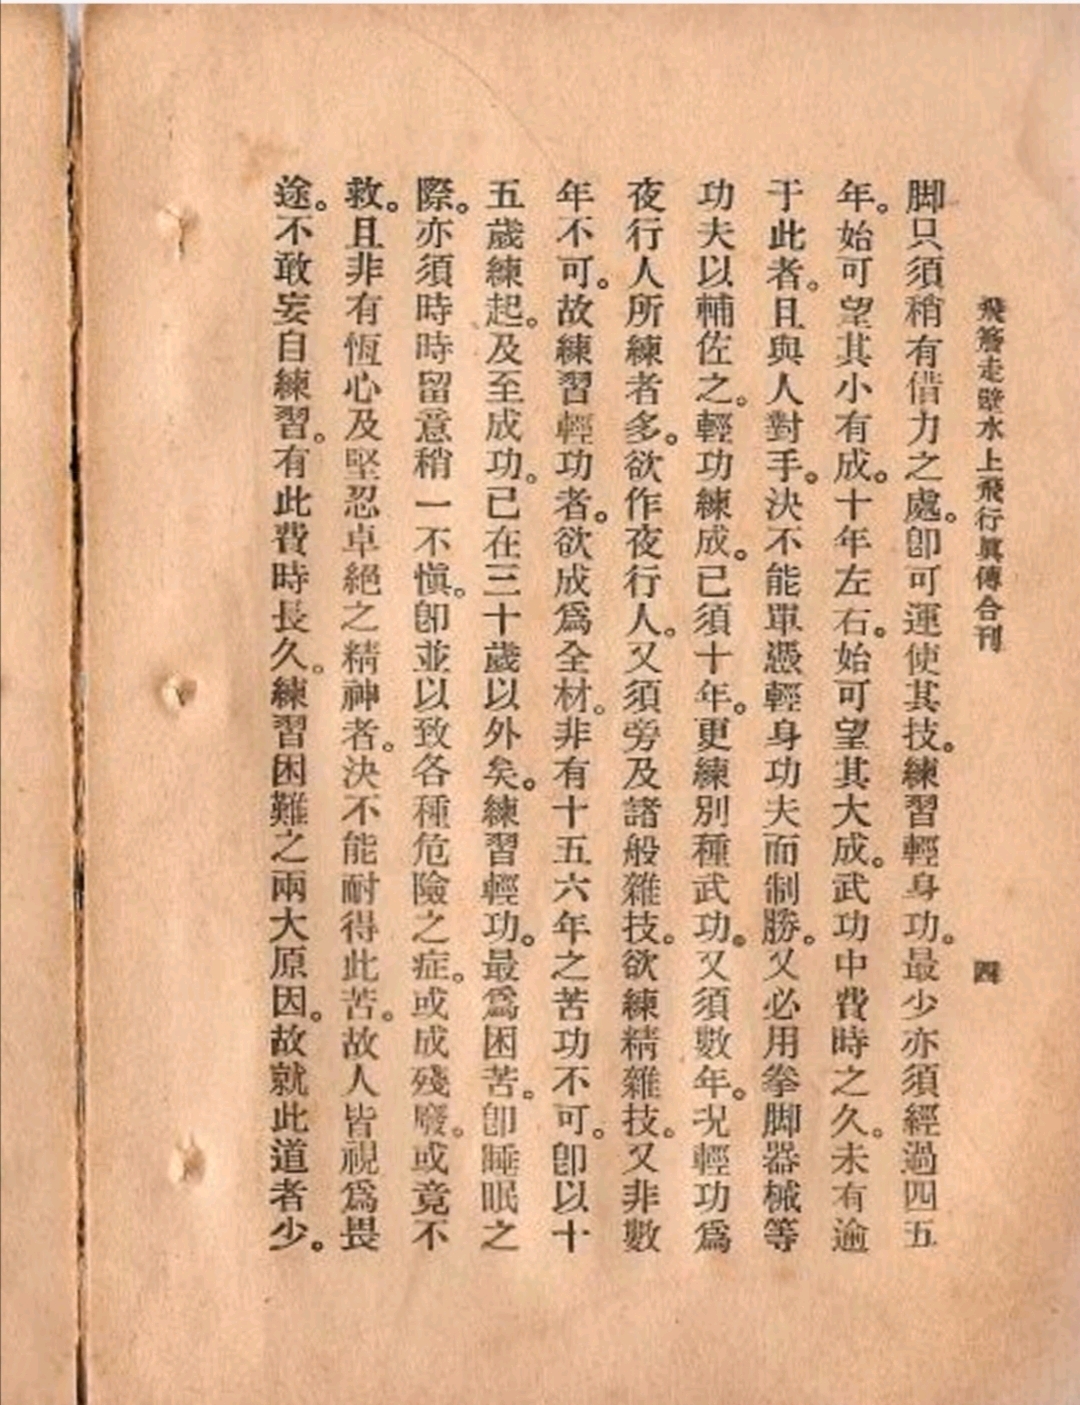 飛簷走壁水上飛行眞傳合刊
四
脚只須稍有借力之處。卽可運使其技。練習輕身功。最少亦須經過四五
年。始可望其小有成。十年左右。始可望其大成。武功中費時之久。未有逾
于此者。且與人對手。決不能單憑輕身功夫而制勝。又必用拳脚器械等
功夫以輔佐之。輕功練成。已須十年。更練別種武功。又須數年。况輕功爲
夜行人所練者多。欲作夜行人。又須旁及諸般雜技。欲練精雜技。又非數
年不可。故練習輕功者。欲成爲全材。非有十五六年之苦功不可。卽以十
五歲練起。及至成功。已在三十歲以外矣。練習輕功。最爲困苦。卽睡眠之
際。亦須時時留意稍一不愼。卽並以致各種危險之症。或成殘廢。或竟不
救。且非有恆心及堅忍卓絕之精神者。決不能耐得此苦。故人皆視爲畏
途。不敢妄自練習。有此費時長久。練習困難之兩大原因。故就此道者少。